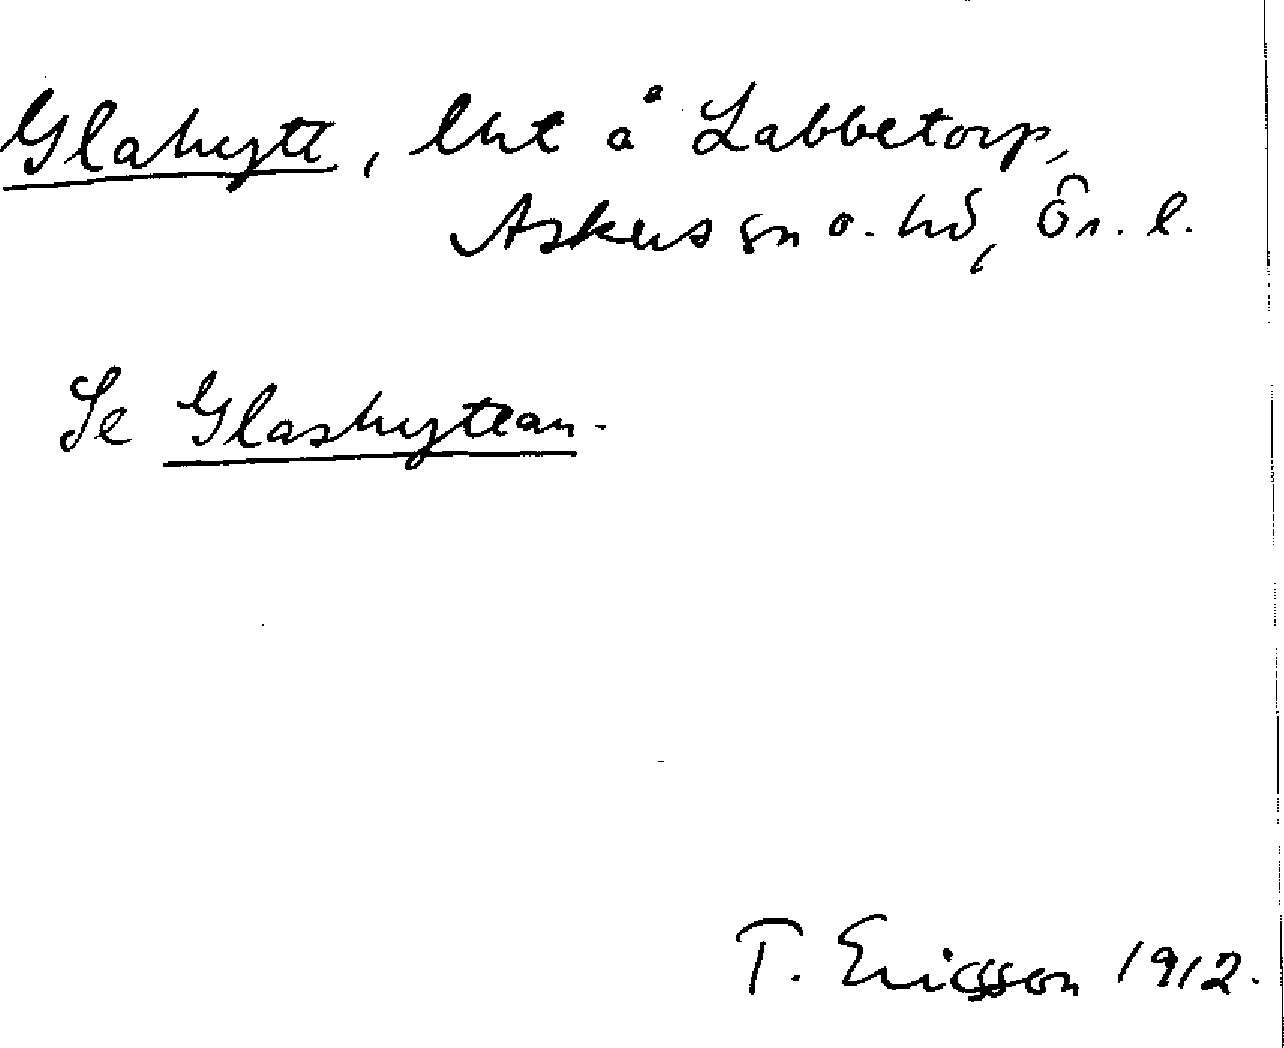 Glahytt, lht å Labbetorp,
Askers sn o. hd, Ör. l.
Se Glashyttan.
T. Ericsson 1912.